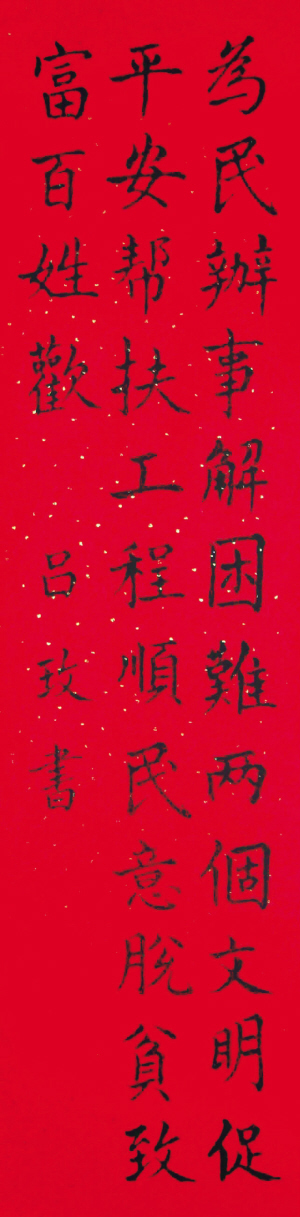 為民辦事解困難两個文明促
平安帮扶工程順民意脫貧致
富百姓歡
吕致書